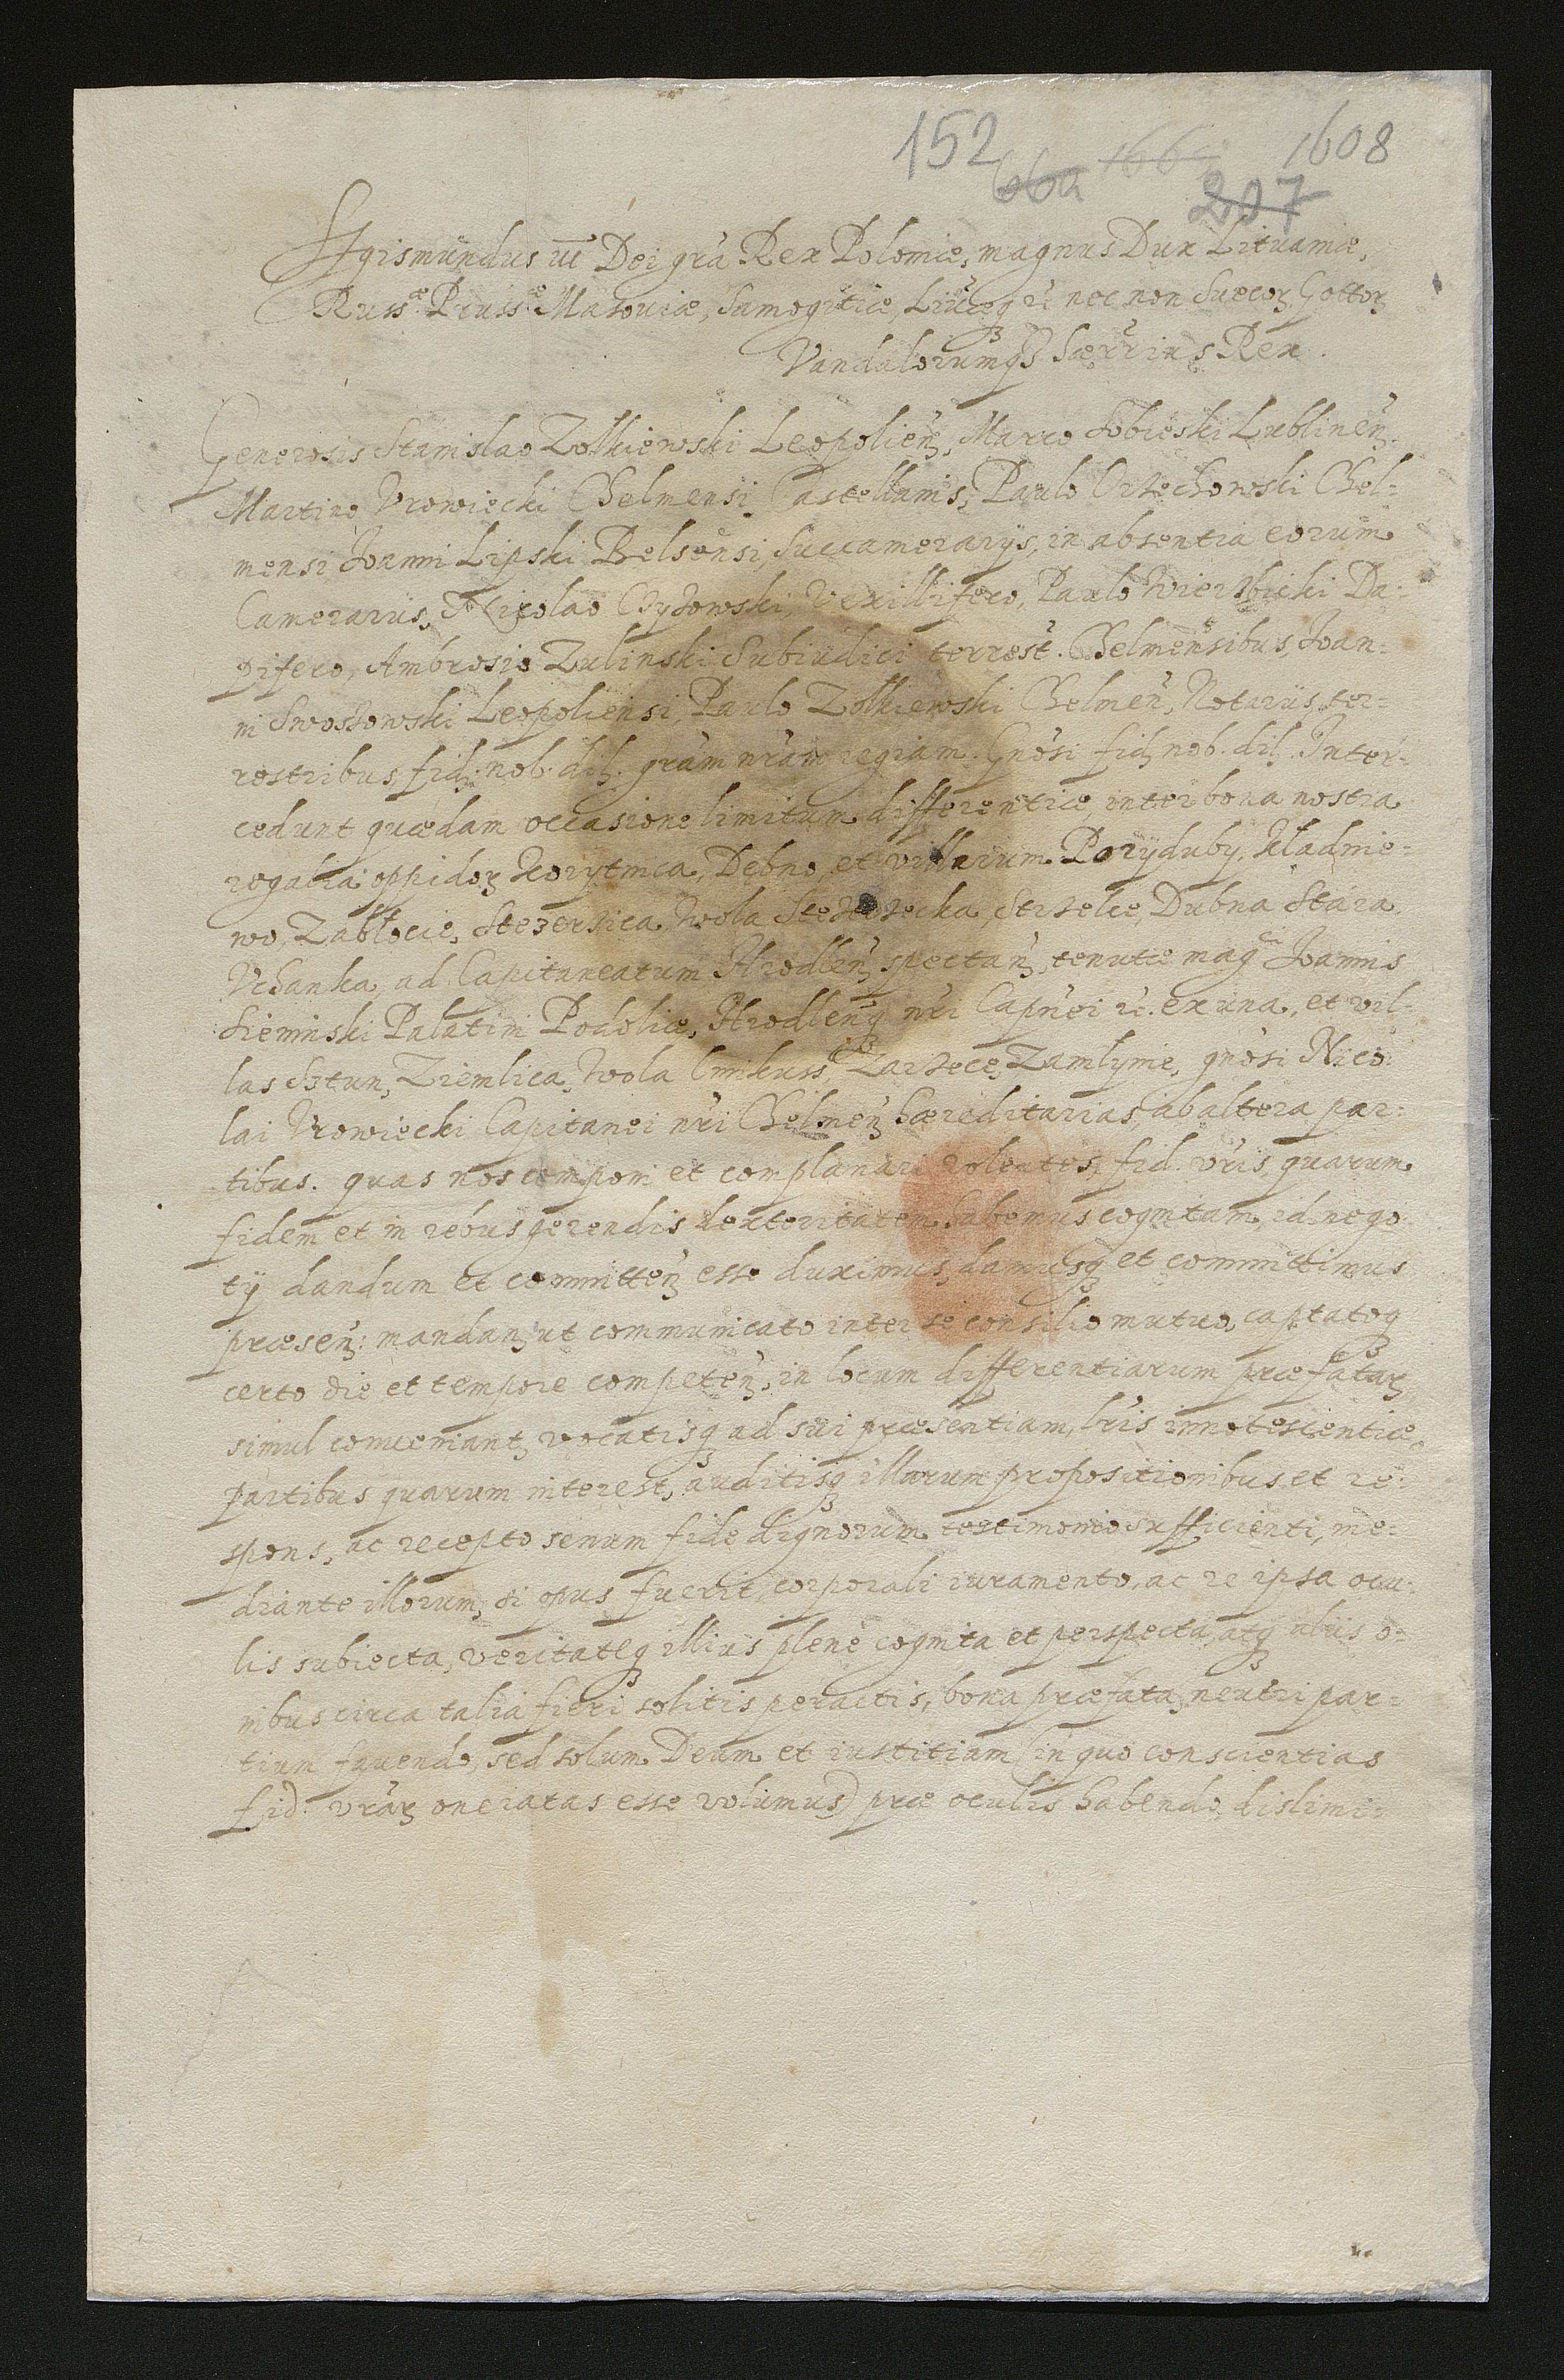 152 1608
66a 166
207
Sigismundus III Dei gra͂ Rex Poloniæ, magnus Dux Lituaniæ,
Russiæ Prussiæ Masouiæ, Samogitiæ, Liuoæq͂ nec non Suecoꝝ Gottoꝝ
Vandalorumq͂ hærrius Rex.
Generosis Stanislao Zolkiewski Leopolien͂, Marco Sobieski Lublinen͂,
Martino Vrowiecki Chelmensi Castellanis, Paulo Orzechowski Chel-
mensi Joanni Lipski Belsensi, Succamerarijs, in absentia eorum
Camerariis, Nicolao Vexillifero, Paulo Wierzbicki Da-
pifero, Ambrosio Zulinski Subiudici terrest͂. Chelmensibus, Joan-
ni Swoszowski Leopoliensi, Paulo Zolkiewski Chelmen͂, Notariis ter-
restribus, fid: nob. dil. gra͂m nr͂am regiam. Gno͂si fid. nob. dil. Inter-
cedunt quædam occasione limitum differentiæ, inter bona nostra
regalia oppidoꝝ Korytnica, Dębno, et villarum Poryduby, Kładnie-
wo, Zabłocie, Stezerzica, Wola Strzelce, Dubna Stara
Vchanka, ad Capitaneatum Hrodlen͂ spectan͂, tenutæ mag͂ci Joannis
Sieninski Palatini Podoliæ, Hrodlen͂q nr͂i Cap͂nei &c. ex una, et vil-
las Sztun, Ziemlica, Wola Zarzecze, Zamlynie, gno͂si Nico-
lai Vrowiecki Capitanei nr͂i Chelmen͂ hæreditarias, ab altera par-
tibus. quas nos componi et complanari volentes, fid. vr͂is, quarum
fidem et in rebus gerendis dexteritatem habemus cognitam, id nego-
tij dandum et committen͂ esse duximus, damusq͂ et committimus
præsen͂: mandan͂ ut communicato inter se consilio mutuo, captatoq͂
certo die et tempore competen͂, in locum differentiarum præfataꝝ
simul conueniant, vocatisq͂ ad sui præsentiam, lr͂is innotescentiæ,
partibus quarum interest, auditisq͂ illarum propositionibus et re-
spons, ac recepto senum fide dignorum testimonio sufficienti, me-
diante illorum, si opus fuerit, corporali iuramento, ac re ipsa ocu-
lis subiecta, veritateq͂ illius plene cognita et perspecta, atq͂ aliis o-
nibus circa talia fieri solitis peractis, bona præfata, neutri par-
tium fauendo, sed solum Deum et iustitiam (in quo conscientias
fid. vr͂aꝝ oneratas esse volumus) præ oculis habendo, dislimi-